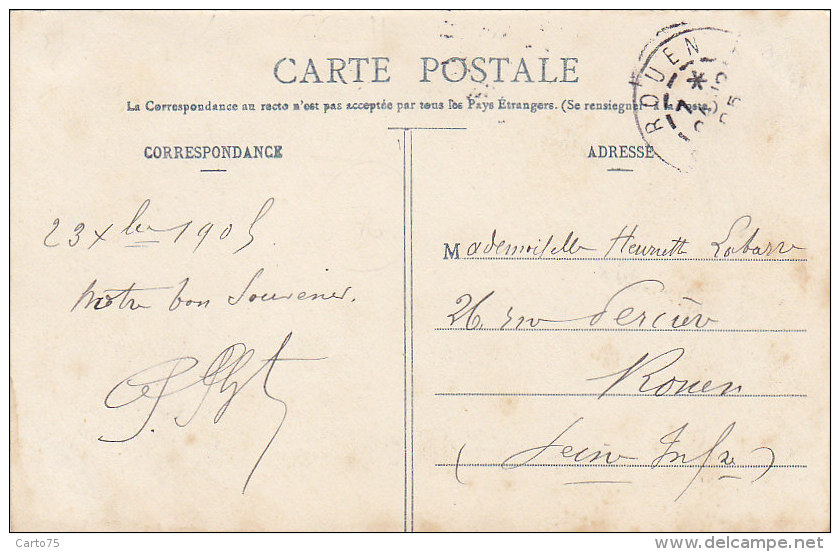 CARTE POSTALE
La Correspondance au recto n'est pas acceptée par tous les Pays Étrangers. (Se renseigner à la Poste)
ROUEN
7 *
CORRESPONDANCE
ADRESSE
23 Xbre 1905
Notre bon Souvenir.
Mademoiselle Henriette Labarre
26. rue Percière
Rouen
(Seine Infre)
Carto75
delcampe.net